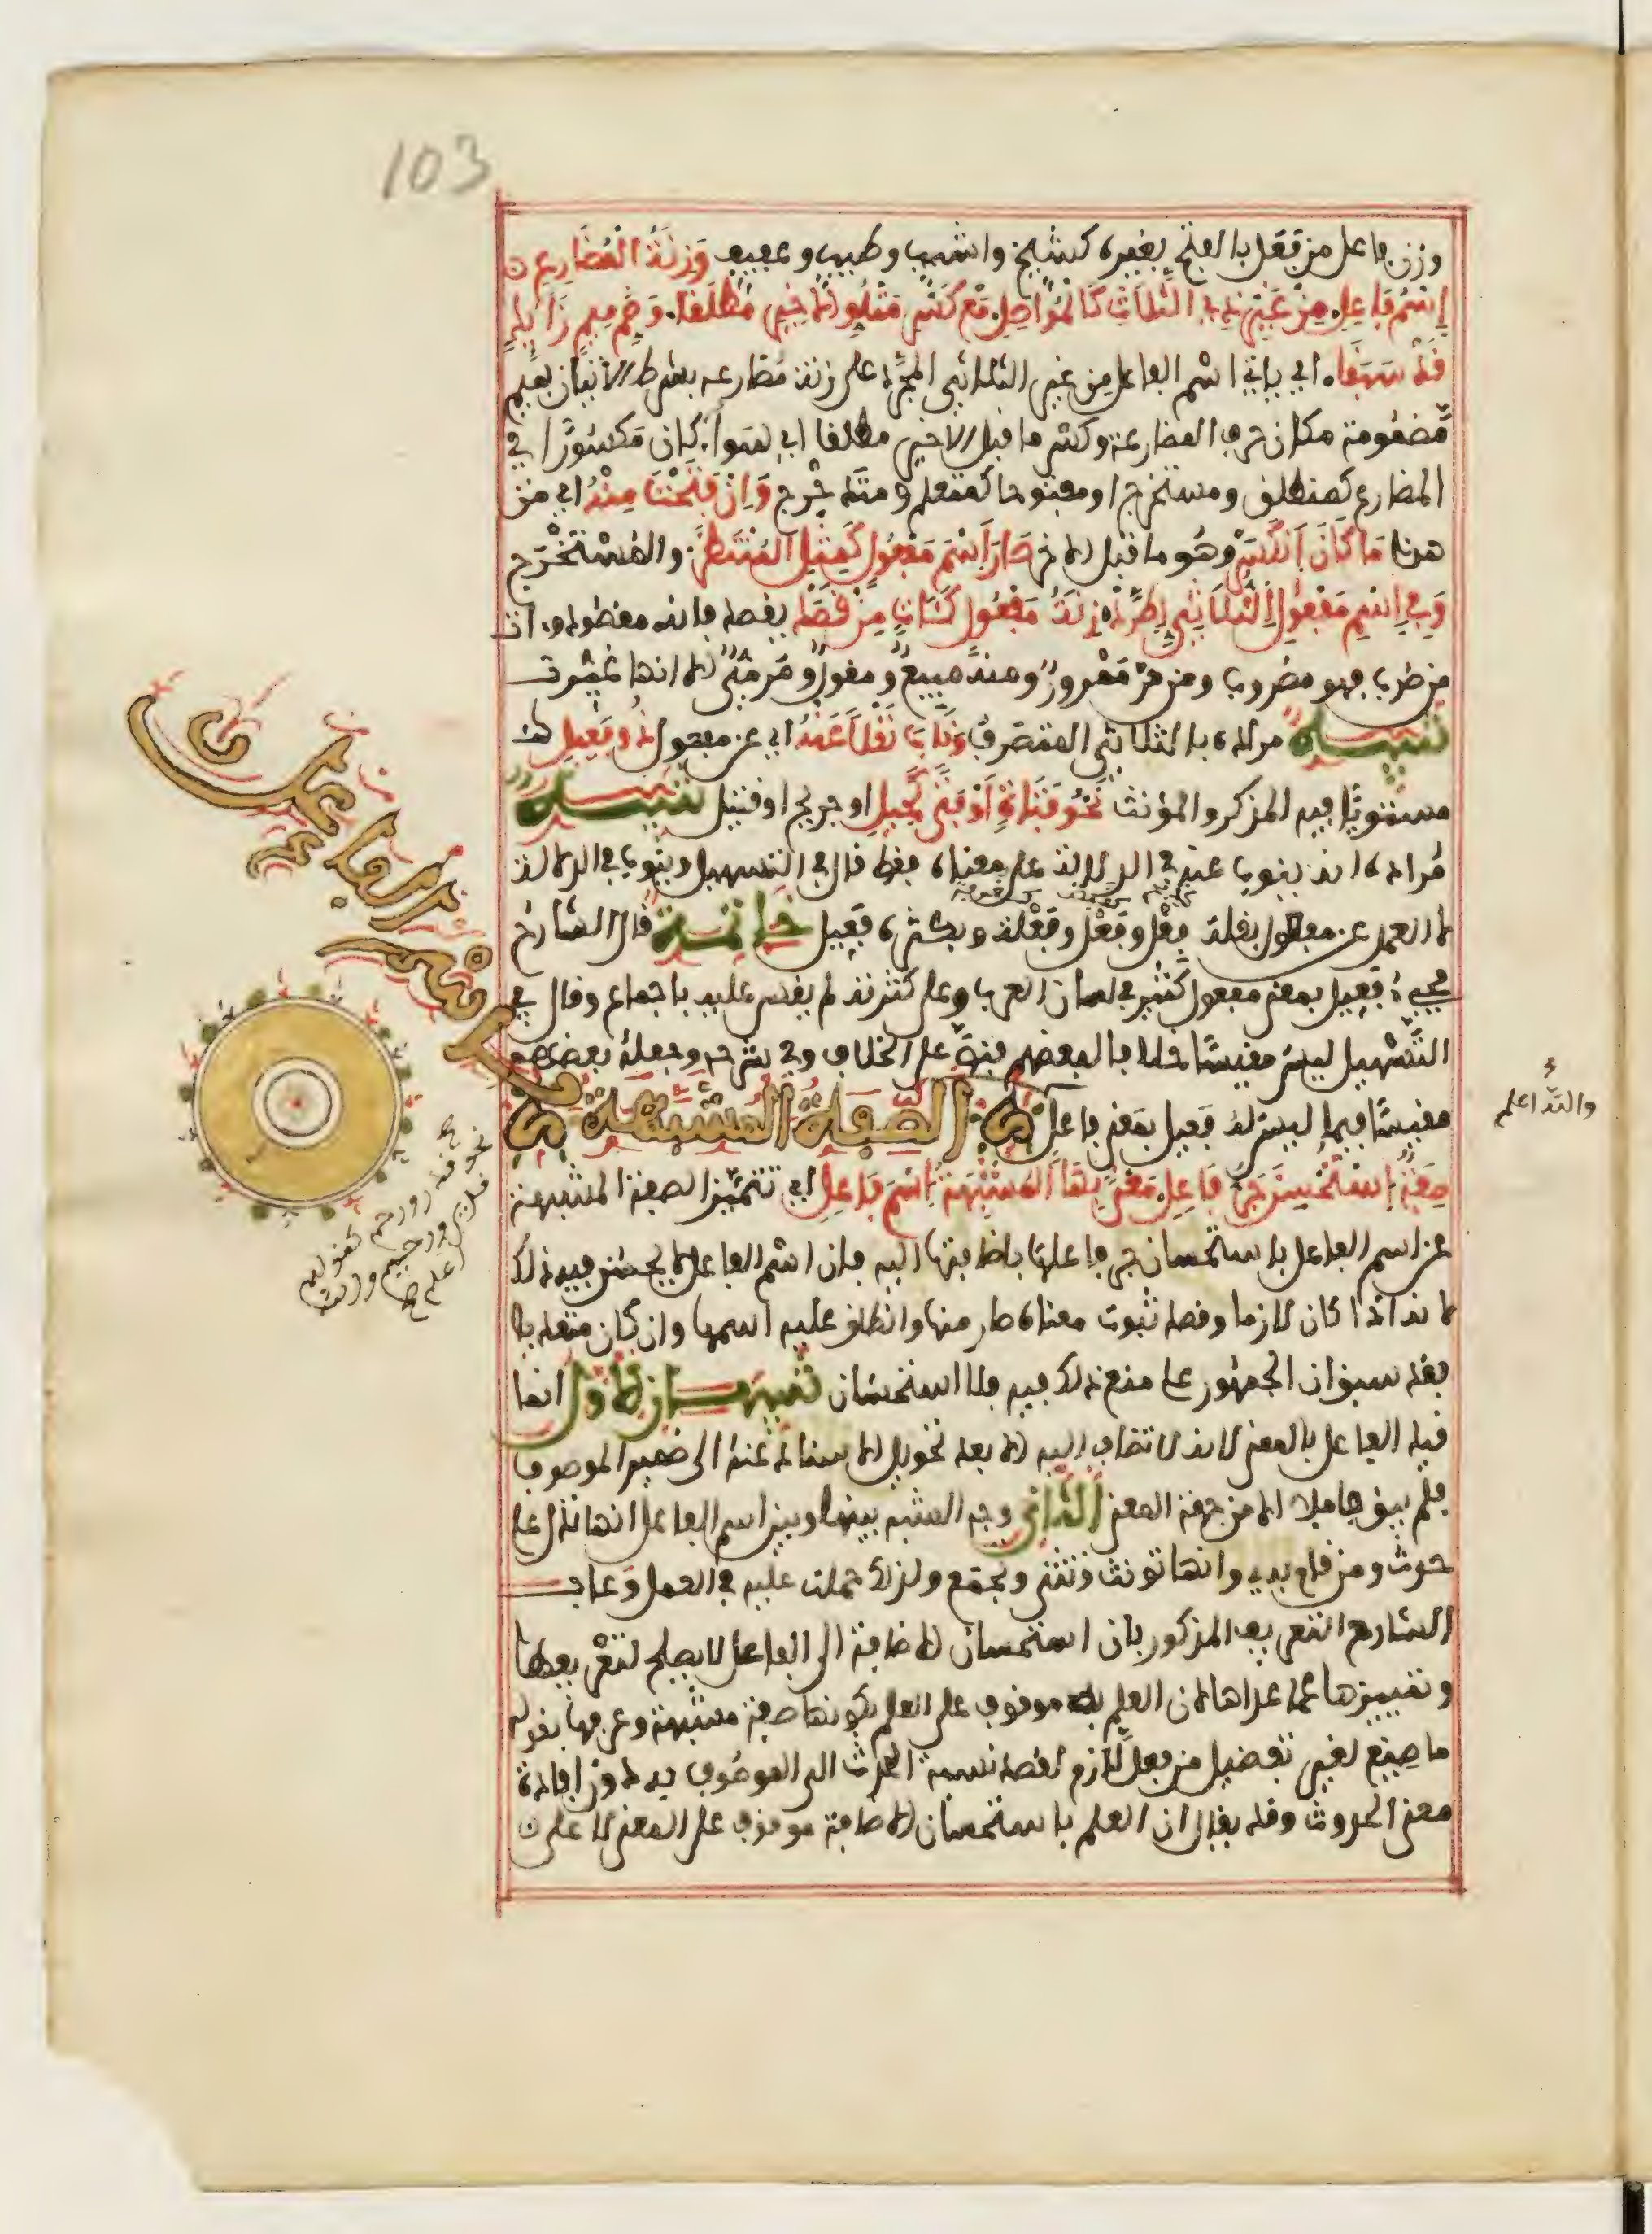 103
وزن فاعل من فعل بالفتح بغيره كشيخ واشيب وطيب وعفيف وَزِنَةُ الْمُضَارِعِ
اِسْمُ فَاعِلِ مِنْ غَيْرِ ذِي الثَّلَاثِ كَالْمُوَاصِلِ مَعَ كَسْرِ مَتْلُوِّ الاَخِيرِ مُطْلَقَا وَضَمِّ مِيمٍ زَائِدٍ
قَدْ سَبَقَا اي ياتي اسم الفاعل من غير الثلاثي المجرد على زنة مضارعه بشرط الاتيان بميم
مضمومة مكان حرف المضارعة وكسر ما قبل الاخير مطلقا اي سواء كان مكسورا في
المضارع كمنطلق ومستخرج او مفتوحا كمتعلم ومتدحرج وَاِنْ فَتَحْتَ مِنْهُ اي من
هذا مَا كَانَ اَنْكَسَرْ وهو ما قبل الاخر صَارَ اسْمَ مَفْعُولٍ كَمِثْلِ الْمُنْتَظَرْ والمستخرج
وَفِي اسْمِ مَفْعُولِ الثُّلَاثِيِّ اطَّرَدْ زِنَةُ مَفْعُولٍ كَآتٍ مِنْ قَصَدْ يقصد فانه مقصود وات
من ضرب فهو مضروب ومن مر ممرور ومنه مبيع ومقول ومرمي الا انها غيرت
تنبيه مراده بالثلاثي المتصرف وَنَابَ نَقْلًا عَنْهُ اي عن مفعول ذُو فَعِيلِ
مستويا فيه المذكر والمؤنث نَحْوُ فَتَاةٍ اَوْ فَتًى كَحِيلِ او جريح او قتيل تنبيه
مراده انه ينوب عنه في الدلالة على معناه فقط قال في التسهيل وينوب في الدلالة
لا العمل عن مفعول بقلة فِعْل وفَعَل وفُعْلة وبكثرة فعيل خاتمة قال الشارح
مجيء فعيل بمعنى مفعول كثير في لسان العرب وعلى كثرته لم يقس عليه باجماع وقال في
التسهيل ليس مقيسا خلافا لبعضهم فنص على الخلاف وفي شرحه وجعله بعضهم
مقيسا فيما ليس له فعيل بمعنى فاعل الصِّفَةُ الْمُشَبَّهَةُ
باسم الفاعل
صِفَةٌ اسْتُحْسِنَ جَرُّ فَاعِلِ مَعْنًى بِهَا الْمُشْبِهَةُ اسْمَ فَاعِلِ اي تتميز الصفة المشبهة
عن اسم الفاعل باستحسان جر فاعلها باضافتها اليه فان اسم الفاعل لا يحسن فيه ذلك
لانه اذا كان لازما وقصد ثبوت معناه صار منها وانطلق عليه اسمها وان كان متعديا
فقد سبق ان الجمهور على منع ذلك فيه فلا استحسان تنبيهان الاول انما
قيد الفاعل بالمعنى لانه لا تضاف اليه الا بعد تحويل الاسناد عنه الى ضمير الموصوف
فلم يبق فاعلا الا من جهة المعنى الثاني وجه الشبه بينها وبين اسم الفاعل انها تدل على
حدث ومن قام به وانها تونث وتثنى وتجمع ولذلك حملت عليه في العمل وعاب
الشارح التعريف المذكور بان استحسان الاضافة الى الفاعل لا يصلح لتعريفها
وتمييزها عما عداها لان العلم به موقوف على العلم بكونها صفة مشبهة وعرفها بقوله
ما صيغ لغير تفضيل من فعل لازم لقصد نسبة الحدث الى الموصوف به دون افادة
معنى الحدوث وقد يقال ان العلم باستحسان الاضافة موقوف على المعنى لا على
والله اعلم